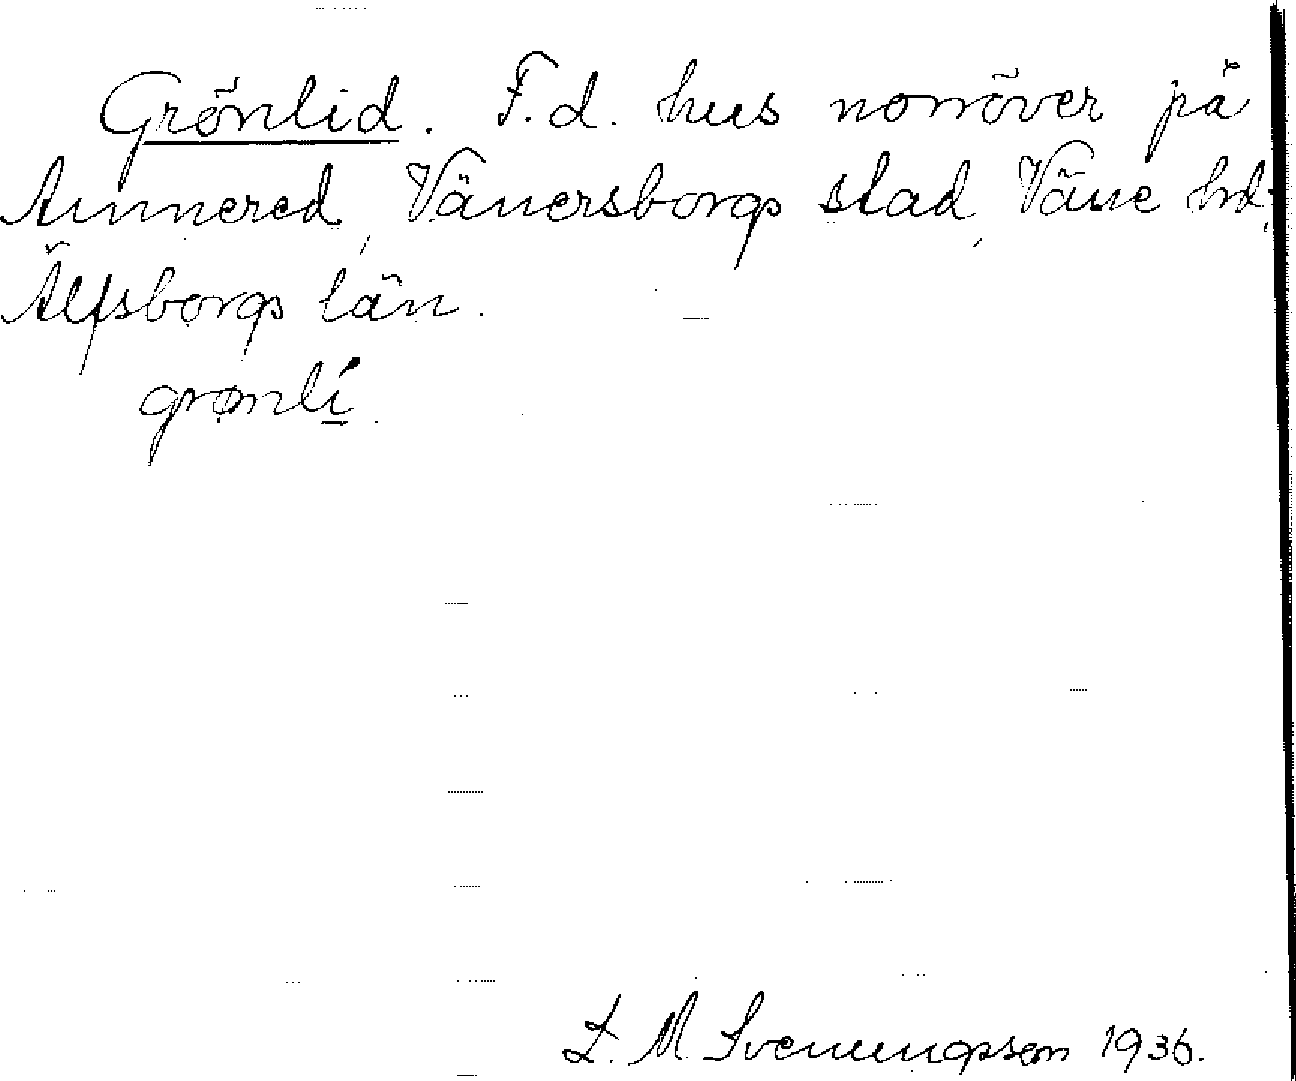 Grönlid. F.d. hus norröver på
Annered, Vänersborgs stad, Väne hd,
Älfsborgs län.
grønlí.
L. M. Svenungsson 1936.